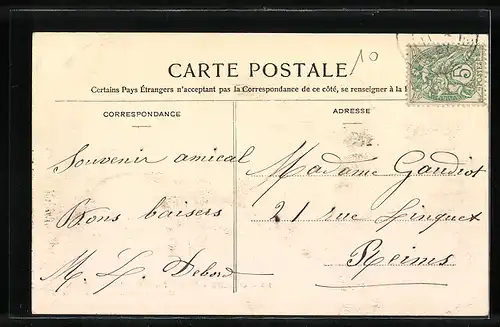 10
CARTE POSTALE
Certains Pays Étrangers n'acceptant pas la Correspondance de ce côté, se renseigner à la
CORRESPONDANCE
ADRESSE
Souvenir amical
Bons baisers
M. L. Debord
Madame Gaudiot
21 rue Linguet
Reims
5